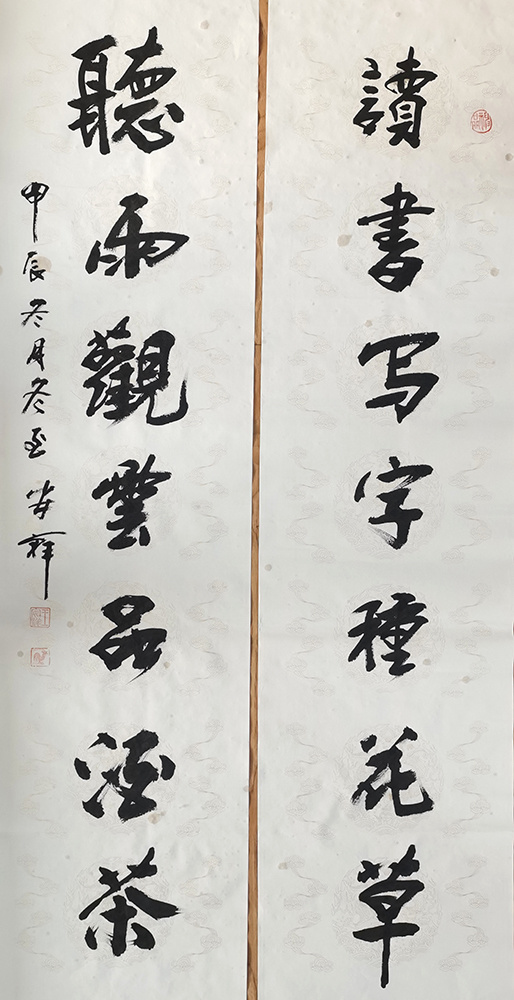 讀書写字種花草
聽雨觀雲品酒茶
甲辰冬月冬至 安祥